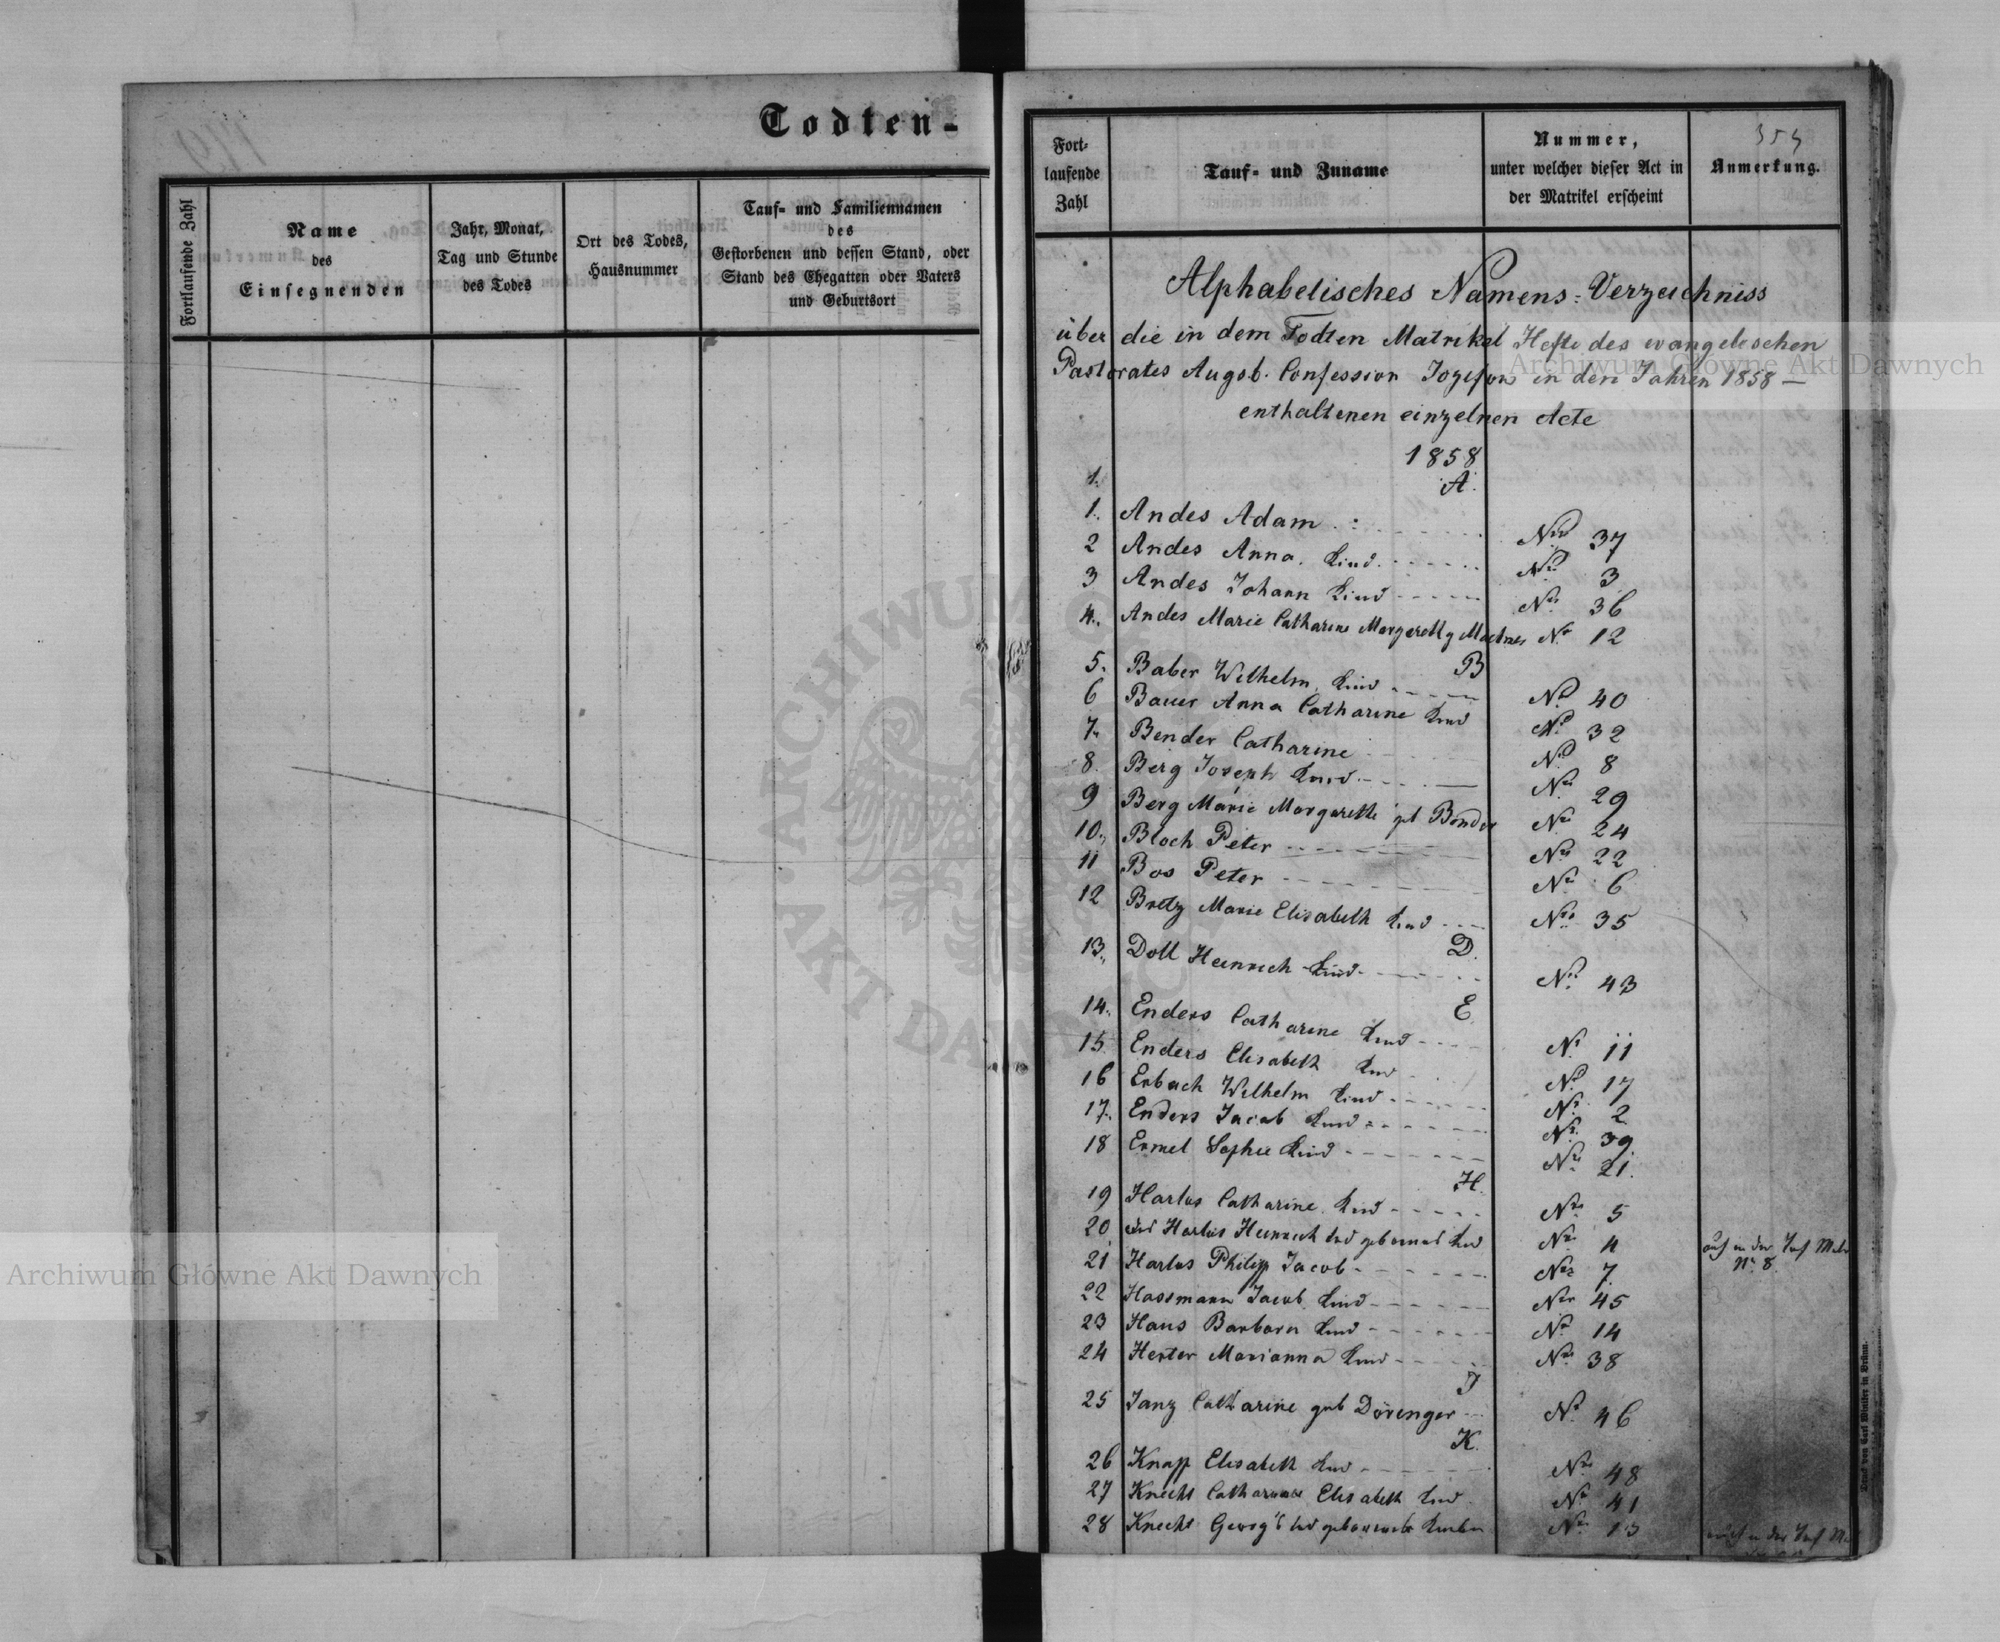 Todten-
Fortlaufende Zahl
Name
des
Einsegnenden
Jahr, Monat,
Tag und Stunde
des Todes
Ort des Todes,
Hausnummer
Tauf- und Familiennamen
des
Gestorbenen und dessen Stand, oder
Stand des Ehegatten oder Vaters
und Geburtsort
Fort-
laufende
Zahl
Tauf- und Zuname
Nummer,
unter welcher dieser Act in
der Matrikel erscheint
Anmerkung.
Alphabetisches Namens-Verzeichniss
über die in dem Todten Matrikel Hefte des evangelischen
Pastorates Augsb. Confession Jozefow in den Jahren 1858 —
enthaltenen einzelnen Acte
1858
1. A.
1. Andes Adam Nro 37
2 Andes Anna Kind Nro 3
3 Andes Johann Kind Nro 36
4. Andes Marie Catharine Nro 12
B
5. Baber Wilhelm Kind Nro 40
6 Bauer Anna Catharine Kind Nro 32
7. Bender Catharine Nro 8
8. Berg Joseph Kind Nro 29
9 Berg Marie Margarethe geb Bender Nro 24
10. Bloch Peter Nro 22
11 Bos Peter Nro 6
12 Bretz Marie Elisabeth Kind Nro 35
D.
13. Doll Heinrich Kind Nro 43
E
14. Enders Catharine Kind Nro 11
15 Enders Elisabeth Kind Nro 17
16 Erbach Wilhelm Kind Nro 2
17. Enders Jacob Kind Nro 39
18 Ermel Sophie Kind Nro 21.
H.
19 Harlos Catharine Kind Nro 5
20 Harlos Heinrich Nro 4 Nr 8
21 Harlos Philipp Jacob Nro 7
22 Hassmann Jacob Kind Nro 45
23 Haus Barbara Kind Nro 14
24 Hexter Marianna Kind Nro 38
J
25 Janz Catharine geb Dörenger Nro 46
K.
26 Knapp Elisabeth Kind Nro 48
27 Knecht Catharina Elisabeth Kind Nro 41
28 Knecht Georg Nro 13
Druck von Carl Winiker in Brünn.
ARCHIWUM
AKT DAWNYCH
Archiwum Główne Akt Dawnych
Archiwum Główne Akt Dawnych